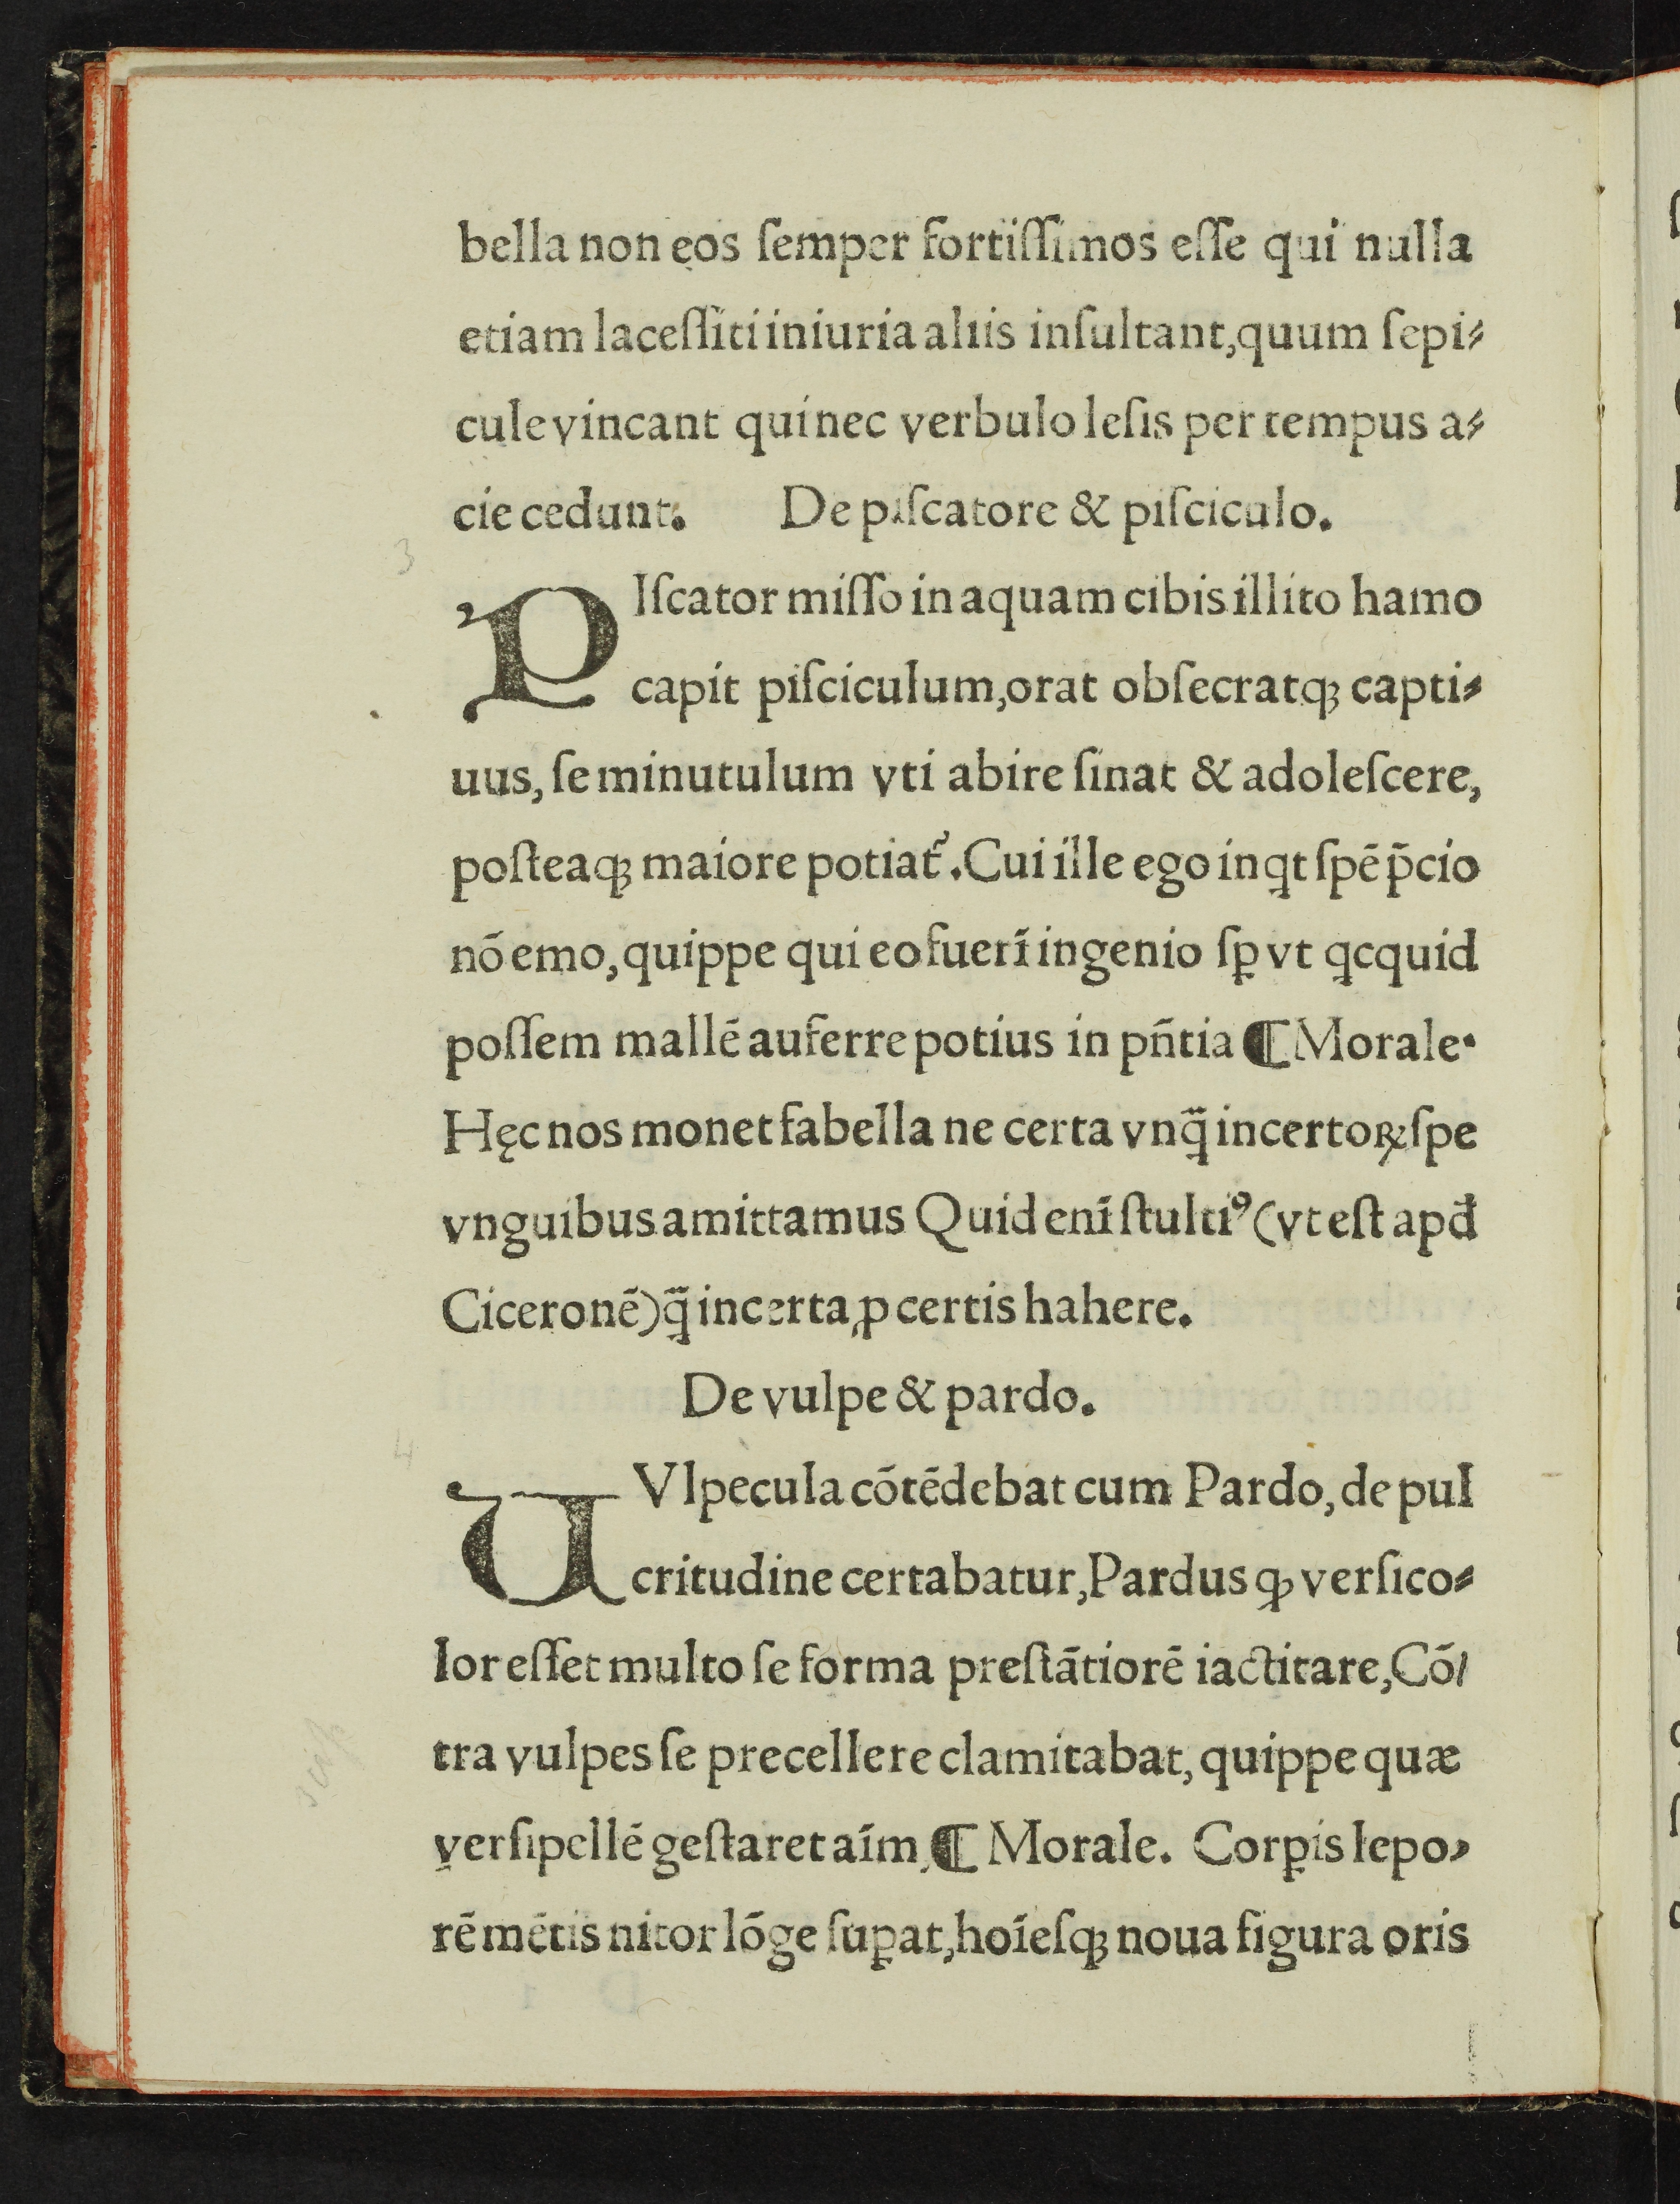 bella non eos ſemper fortiſſimos eſſe qui nulla
etiam laceſſiti iniuria aliis inſultant, quum ſepi⸗
cule vincant qui nec verbulo leſis per tempus a⸗
cie cedunt. De piſcatore & piſciculo.
3
PIſcator miſſo in aquam cibis illito hamo
capit piſciculum, orat obſecratqꝫ capti⸗
uus, ſe minutulum vti abire ſinat & adoleſcere,
poſteaqꝫ maiore potiat᷑. Cui ille ego inqt ſpē p̄cio
nō emo, quippe qui eo fuerī ingenio ſꝑ vt qcquid
poſſem mallē auferre potius in pñtia ¶ Morale.
Hęc nos monet fabella ne certa vnq̃ incertoꝝ ſpe
vnguibus amittamus Quid enī ſtultiꝰ (vt eſt apđ
Ciceronē) q̃ incerta ꝓ certis hahere.
De vulpe & pardo.
4
UVlpecula cōtēdebat cum Pardo, de pul
critudine certabatur, Pardus ꝙ verſico⸗
lor eſſet multo ſe forma preſtātiorē iactitare, Cō/
tra vulpes ſe precellere clamitabat, quippe quæ
verſipellē geſtaret aīm, ¶ Morale. Corꝑis lepo⸗
rē mētis nitor lōge ſuꝑat, hoīeſqꝫ noua figura oris